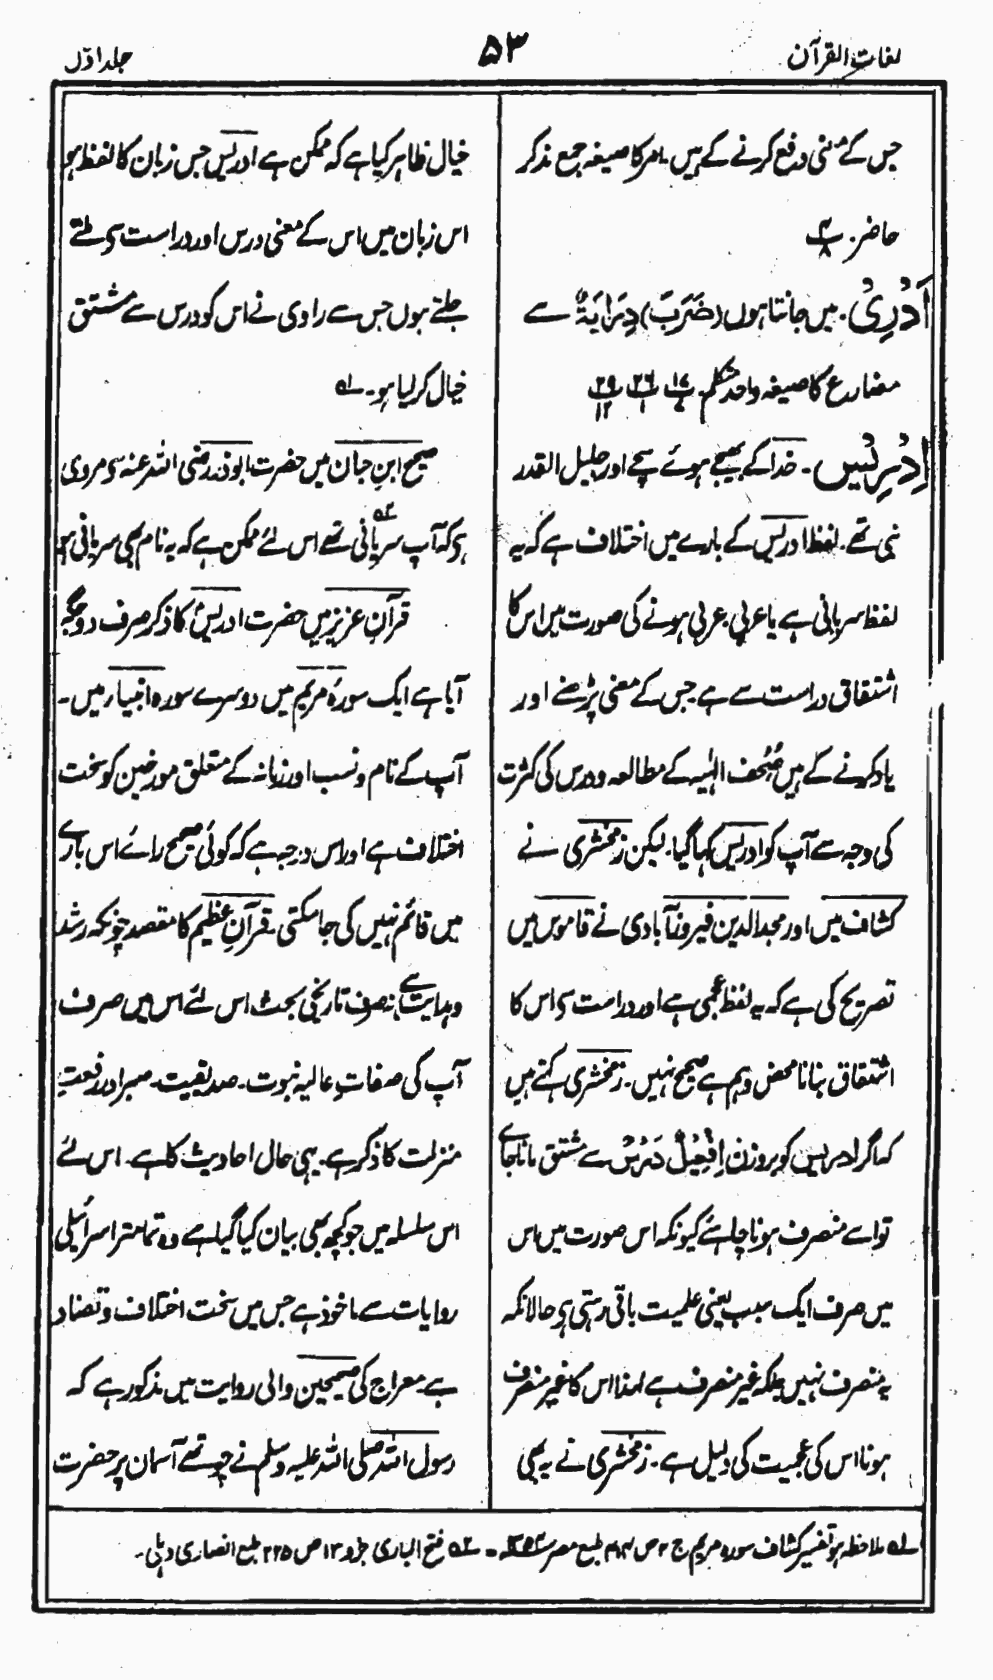 لغات القرآن
۵۳
جلد اوّل
جس کے معنی دفع کرنے کے ہیں۔ امر کا صیغہ جمع مذکر
حاضر۔ پ
اَدْرِیْ۔ میں جانتا ہوں (ضَرَبَ) دِرَایَۃٌ سے
مضارع کا صیغہ واحد متکلم۔ پ ۱۷ پ ۲۶ پ ۲۹
اِدْرِیْس۔ خدا کے بھیجے ہوئے سچے اور جلیل القدر
نبی تھے۔ لفظ ادریس کے بارے میں اختلاف ہے کہ یہ
لفظ سریانی ہے یا عربی۔ عربی ہونے کی صورت میں اس کا
اشتقاق دراست سے ہے جس کے معنی پڑھنے اور
یاد کرنے کے ہیں صُحُف الٰہیہ کے مطالعہ و درس کی کثرت
کی وجہ سے آپ کو ادریس کہا گیا۔ لیکن زمخشری نے
کشاف میں اور مجد الدین فیروزآبادی نے قاموس میں
تصریح کی ہے کہ یہ لفظ عجمی ہے اور دراست سے اس کا
اشتقاق بتانا محض وہم ہے صحیح نہیں۔ زمخشری کہتے ہیں
کہ اگر ادریس کو بروزن اِفْعِیْلٌ دَرْسٌ سے مشتق مانا جائے
تو اسے منصرف ہونا چاہئے کیونکہ اس صورت میں اس
میں صرف ایک سبب یعنی علمیت باقی رہتی ہی حالانکہ
یہ منصرف نہیں بلکہ غیر منصرف ہے لہٰذا اس کا غیر منصرف
ہونا اس کی عجمیت کی دلیل ہے۔ زمخشری نے یہ بھی
خیال ظاہر کیا ہے کہ ممکن ہے ادریس جس زبان کا لفظ ہو
اس زبان میں اس کے معنی درس اور دراست سے ملتے
جلتے ہوں جس سے راوی نے اس کو درس سے مشتق
خیال کر لیا ہو۔ ۱ھ
صحیح ابن حبان میں حضرت ابوذر رضی اللہ عنہ سے مروی
ہی کہ آپ سریانی ۲ھ تھے اس لئے ممکن ہے کہ یہ نام بھی سریانی ہو
قرآن عزیز میں حضرت ادریسؑ کا ذکر صرف دو جگہ
آیا ہے ایک سورۂ مریم میں دوسرے سورہ انبیاء میں۔
آپ کے نام و نسب اور زمانہ کے متعلق مورخین کو سخت
اختلاف ہے اور اس درجہ ہے کہ کوئی صحیح رائے اس بارے
میں قائم نہیں کی جا سکتی۔ قرآن عظیم کا مقصد چونکہ رشد
و ہدایت ہے نہ صرف تاریخی بحث اس لئے اس میں صرف
آپ کی صفات عالیہ نبوت۔ صدیقیت۔ صبر اور رفعت
منزلت کا ذکر ہے۔ یہی حال احادیث کا ہے۔ اس لئے
اس سلسلہ میں جو کچھ بھی بیان کیا گیا ہے وہ تمامتر اسرائیلی
روایات سے ماخوذ ہے جس میں سخت اختلاف و تضاد
ہے معراج کی صحیحین والی روایت میں مذکور ہے کہ
رسول اللہ صلی اللہ علیہ وسلم نے چوتھے آسمان پر حضرت
۱ھ ملاحظہ ہو تفسیر کشاف سورہ مریم ج ۲ ص طبع مصر ۔ ۲ھ فتح الباری جزو ۱۳ ص ۲۲۵ طبع انصاری دہلی۔